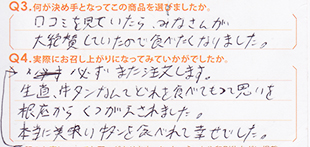 Q3.何が決め手となってこの商品を選びましたか。
口コミを見ていたら、みなさんが
大絶賛していたので食べたくなりました。
Q4.実際にお召し上がりになってみていかがでしたか。
必ずまた注文します。
生直、牛タンなんてどれを食べても同じって思いを
根底からくつがえされました。
本当に美味しい牛タンを食べれて幸せでした。